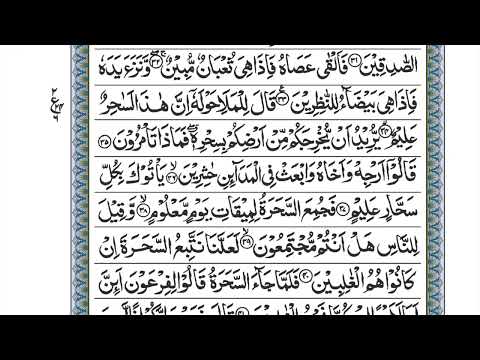 الصّٰدِقِيْنَ ﴿۳۱﴾ فَاَلْقٰى عَصَاهُ فَاِذَا هِىَ ثُعْبَانٌ مُّبِيْنٌ ﴿۳۲﴾ وَّنَزَعَ يَدَهٗ
فَاِذَا هِىَ بَيْضَآءُ لِلنّٰظِرِيْنَ ﴿۳۳﴾ قَالَ لِلْمَلَاِ حَوْلَهٗۤ اِنَّ هٰذَا لَسٰحِرٌ
عَلِيْمٌ ﴿۳۴﴾ يُّرِيْدُ اَنْ يُّخْرِجَكُمْ مِّنْ اَرْضِكُمْ بِسِحْرِهٖ فَمَاذَا تَاْمُرُوْنَ ﴿۳۵﴾
قَالُوْۤا اَرْجِهْ وَاَخَاهُ وَابْعَثْ فِى الْمَدَآئِنِ حٰشِرِيْنَ ﴿۳۶﴾ يَاْتُوْكَ بِكُلِّ
سَحَّارٍ عَلِيْمٍ ﴿۳۷﴾ فَجُمِعَ السَّحَرَةُ لِمِيْقَاتِ يَوْمٍ مَّعْلُوْمٍ ﴿۳۸﴾ وَّقِيْلَ
لِلنَّاسِ هَلْ اَنْتُمْ مُّجْتَمِعُوْنَ ﴿۳۹﴾ لَعَلَّنَا نَتَّبِعُ السَّحَرَةَ اِنْ
كَانُوْا هُمُ الْغٰلِبِيْنَ ﴿۴۰﴾ فَلَمَّا جَآءَ السَّحَرَةُ قَالُوْا لِفِرْعَوْنَ اَئِنَّ